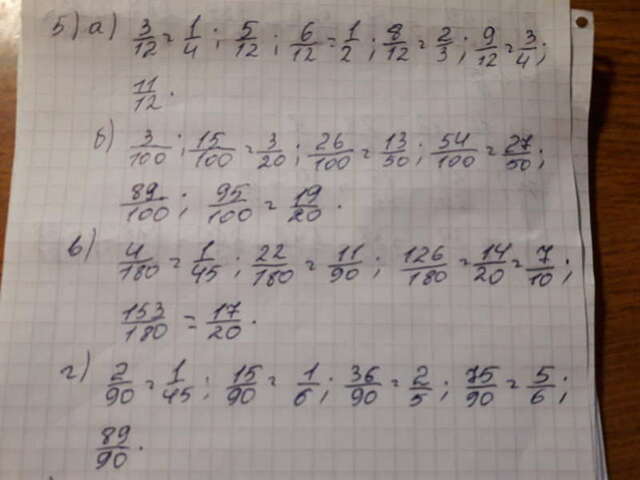 5) а) 3/12 = 1/4 ; 5/12 ; 6/12 = 1/2 ; 8/12 = 2/3 ; 9/12 = 3/4 ;
11/12 .
б) 3/100 ; 15/100 = 3/20 ; 26/100 = 13/50 ; 54/100 = 27/50 ;
89/100 ; 95/100 = 19/20 .
в) 4/180 = 1/45 ; 22/180 = 11/90 ; 126/180 = 14/20 = 7/10 ;
153/180 = 17/20 .
г) 2/90 = 1/45 ; 15/90 = 1/6 ; 36/90 = 2/5 ; 75/90 = 5/6 ;
89/90 .